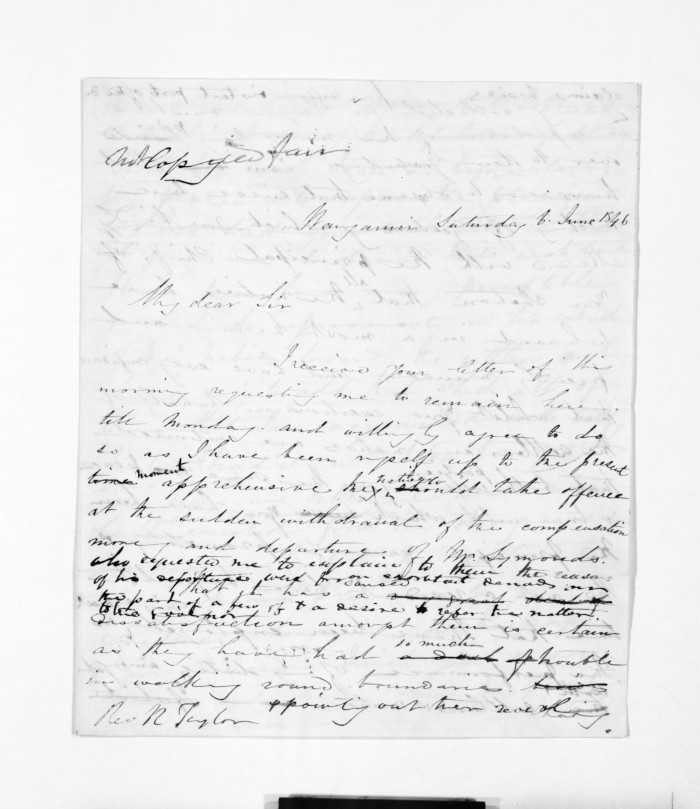 Not Copied fair
Wanganui Saturday 6 June 1846
My dear Sir
I received your letter of this
morning requesting me to remain here
till Monday. and willingly agree to do
so as I have been myself up to the present
time moment apprehensive the natives should take offence
at the sudden withdrawal of the compensation
money and departure of Mr Symonds.
who requested me to explain to them the reasons
of his departure were from exorbitant demands on
the part of a few of & a desire to refer the matter
to the Governor
That it has caused a great deal of
dissatisfaction amongst them is certain
as they have had a deal of so much trouble
in walking round boundaries
& pointing out their
Rev R Taylor